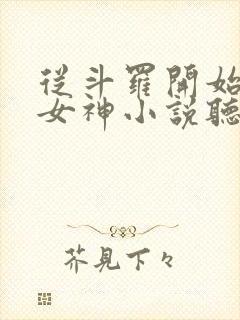 從斗羅開始
女神小説聽
芥見下々